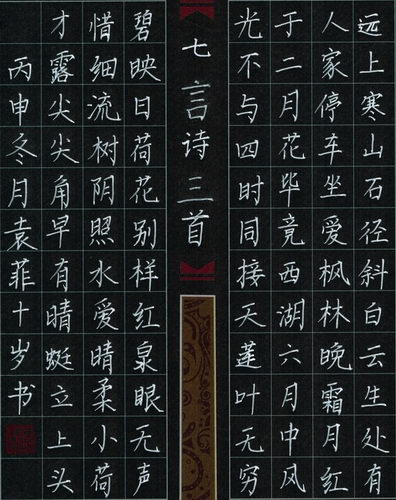 远上寒山石径斜白云生处有
人家停车坐爱枫林晚霜月红
于二月花毕竟西湖六月中风
光不与四时同接天莲叶无穷
七言诗三首
碧映日荷花别样红泉眼无声
惜细流树阴照水爱晴柔小荷
才露尖尖角早有晴蜓立上头
丙申冬月袁菲十岁书